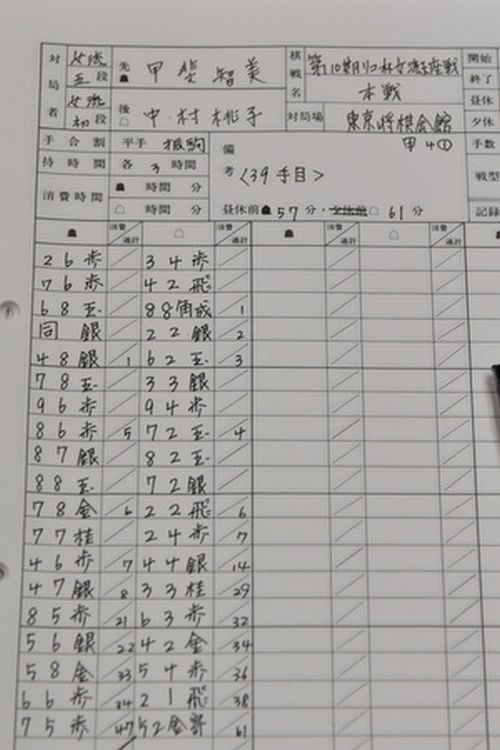 対局者 女流五段 先☗ 甲斐智美 棋戦名 第10期リコー杯女流王座戦 本戦 開始
終了
女流初段 後☖ 中村桃子 対局場 東京将棋会館 昼休
夕休
手合割 平手 振駒 備考 甲4① 手数
持時間 各3時間 <39手目> 戦型
消費時間 ☗ 時間 分
☖ 時間 分 昼休前☗57分・夕休前☖61分 記録
☗ 消費通計 ☖ 消費通計 ☗ 消費通計 ☖ 消費通計
26歩 34歩
76歩 42飛
68玉 88角成 1
同銀 22銀 2
48銀 1 62玉 3
78玉 33銀
96歩 94歩
86歩 5 72玉 4
87銀 82玉
88玉 72銀
78金 6 22飛 6
77桂 24歩 7
46歩 7 44銀 14
47銀 8 33桂 29
85歩 21 63歩 32
56銀 22 42金 34
58金 33 54歩 36
66歩 34 21飛 38
75歩 47 52金寄 61